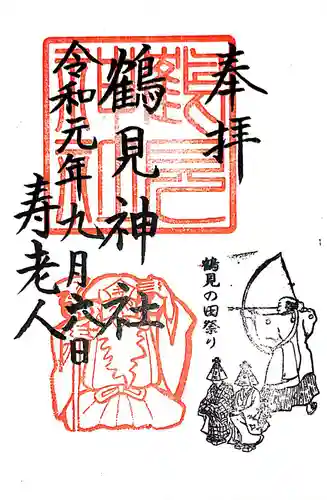 奉拝
鶴見の田祭り
鶴見神社
令和元年九月六日
寿老人